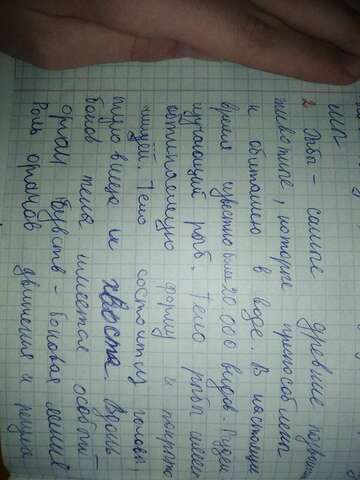 2 Рыбы - самые древние позвон
животные, которые приспособлены
к обитанию в воде. В настоящее
время известно более 20 000 видов
изучающий рыб. Тело рыбы имеет
обтекаемую форму и покрыто
чешуёй. Тело состоит из головы
туловища и хвоста. Вдоль
боков тела имеется особый
орган чувств - боковая линия
Роль органов движения и рецеп